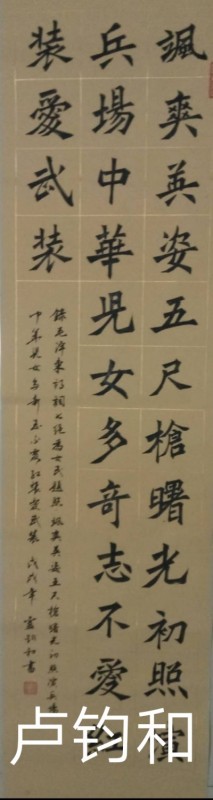 颯爽英姿五尺槍曙光初照演
兵場中華兒女多奇志不愛紅
裝愛武裝
錄毛澤東詩詞七绝為女民兵題照 颯爽英姿五尺槍曙光初照演兵場
中華兒女多奇志不愛紅裝愛武裝 戊戌年 盧鈞和書
卢钧和